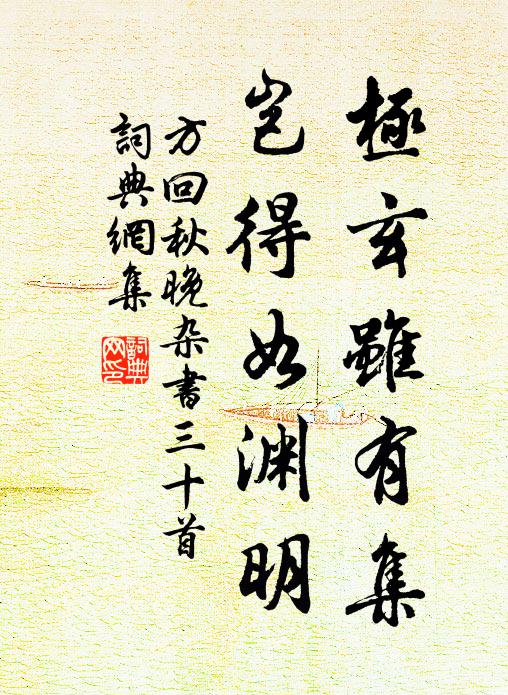 極玄雖有集
豈得如渊明
方回秋晚杂書三十首
詞典網集
詞典网印